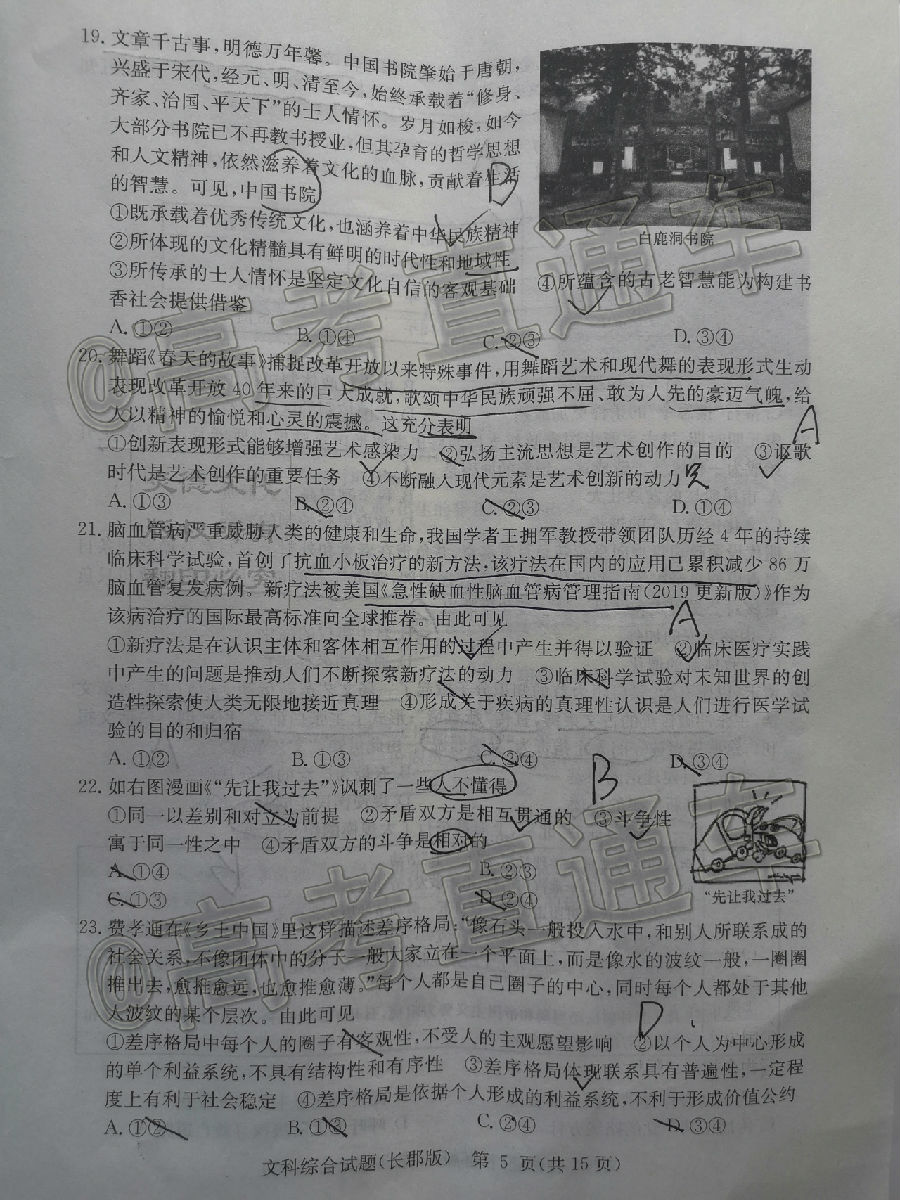 19. 文章千古事，明德万年馨。中国书院肇始于唐朝，
兴盛于宋代，经元、明、清至今，始终承载着“修身、
齐家、治国、平天下”的士人情怀。岁月如梭，如今
大部分书院已不再教书授业，但其孕育的哲学思想
和人文精神，依然滋养着文化的血脉，贡献着生活
的智慧。可见，中国书院
B
白鹿洞书院
①既承载着优秀传统文化，也涵养着中华民族精神
②所体现的文化精髓具有鲜明的时代性和地域性
③所传承的士人情怀是坚定文化自信的客观基础 ④所蕴含的古老智慧能为构建书
香社会提供借鉴
A. ①② B. ①④ C. ②③ D. ③④
20. 舞蹈《春天的故事》捕捉改革开放以来特殊事件，用舞蹈艺术和现代舞的表现形式生动
表现改革开放 40 年来的巨大成就，歌颂中华民族顽强不屈、敢为人先的豪迈气魄，给
人以精神的愉悦和心灵的震撼。这充分表明
A
①创新表现形式能够增强艺术感染力 ②弘扬主流思想是艺术创作的目的 ③讴歌
时代是艺术创作的重要任务 ④不断融入现代元素是艺术创新的动力
A. ①③ B. ②④ C. ②③ D. ①④
21. 脑血管病严重威胁人类的健康和生命，我国学者王拥军教授带领团队历经 4 年的持续
临床科学试验，首创了抗血小板治疗的新方法，该疗法在国内的应用已累积减少 86 万
脑血管复发病例。新疗法被美国《急性缺血性脑血管病管理指南（2019 更新版）》作为
该病治疗的国际最高标准向全球推荐。由此可见
A
①新疗法是在认识主体和客体相互作用的过程中产生并得以验证 ②临床医疗实践
中产生的问题是推动人们不断探索新疗法的动力 ③临床科学试验对未知世界的创
造性探索使人类无限地接近真理 ④形成关于疾病的真理性认识是人们进行医学试
验的目的和归宿
A. ①② B. ①③ C. ②④ D. ③④
22. 如右图漫画《“先让我过去”》讽刺了一些人不懂得
B
①同一以差别和对立为前提 ②矛盾双方是相互贯通的 ③斗争性
寓于同一性之中 ④矛盾双方的斗争是相对的
A. ①④ B. ②③
C. ①③ D. ②④
“先让我过去”
23. 费孝通在《乡土中国》里这样描述差序格局：“像石头一般投入水中，和别人所联系成的
社会关系，不像团体中的分子一般大家立在一个平面上，而是像水的波纹一般，一圈圈
推出去，愈推愈远，也愈推愈薄。”每个人都是自己圈子的中心，同时每个人都处于其他
人波纹的某个层次。由此可见
D
①差序格局中每个人的圈子有客观性，不受人的主观愿望影响 ②以个人为中心形成
的单个利益系统，不具有结构性和有序性 ③差序格局体现联系具有普遍性，一定程
度上有利于社会稳定 ④差序格局是依据个人形成的利益系统，不利于形成价值公约
A. ①② B. ①③ C. ②④ D. ③④
文科综合试题（长郡版） 第 5 页（共 15 页）
@高考直通车
@高考直通车